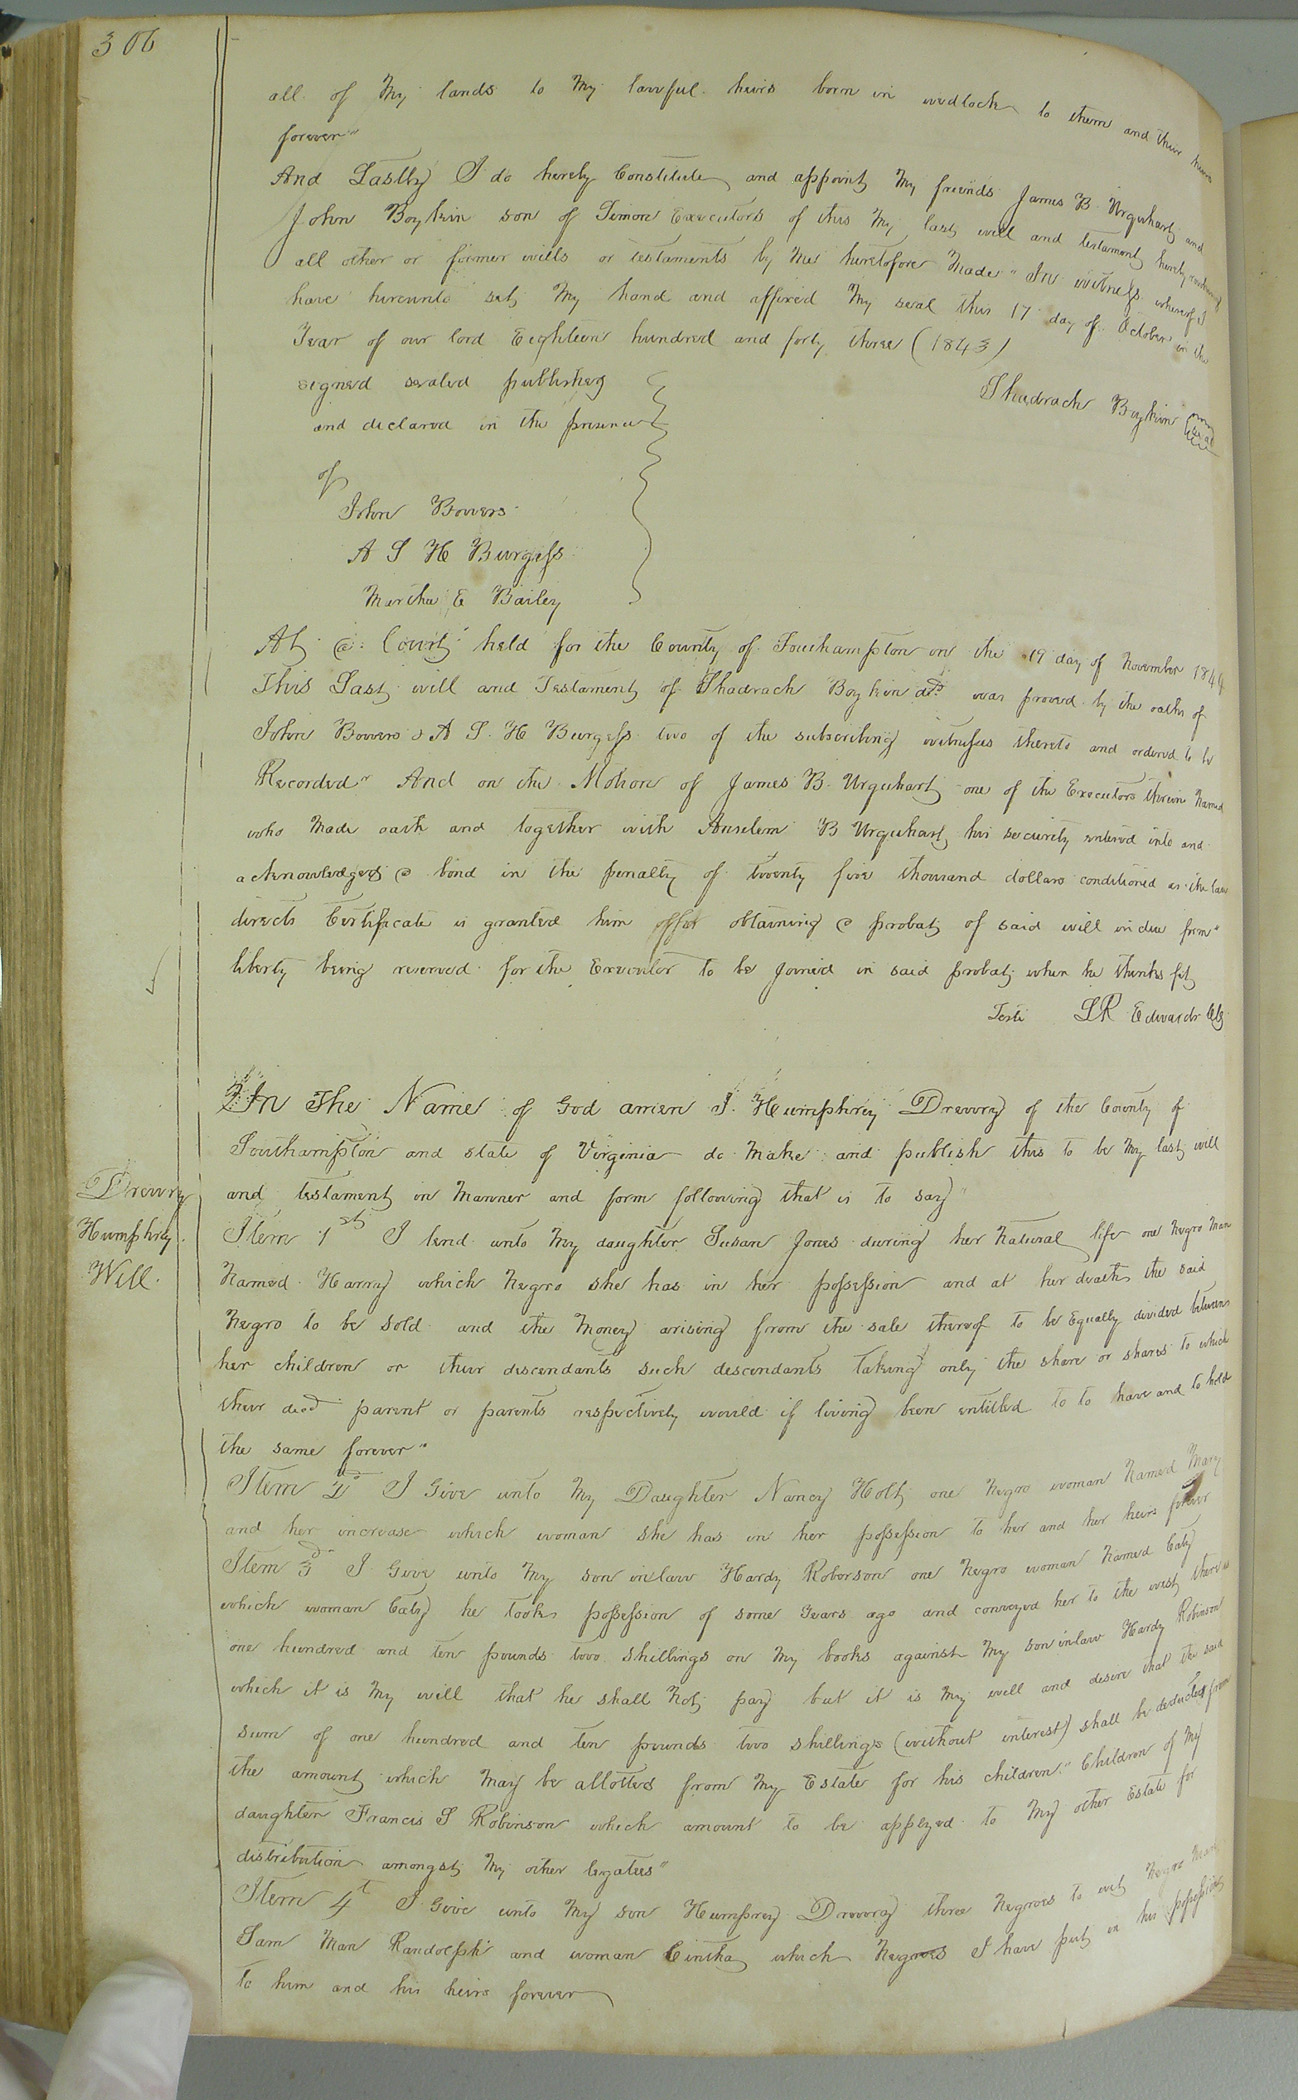 306
all of My lands to My lawful heirs born in wedlock to them and their heirs
forever"
And Lastly I do hereby Constitute and appoint My friends James B. Urquhart and
John Boykin son of Simon Executors of this My last will and testament hereby revoking
all other or former wills or testaments by Me heretofore Made" In witness whereof I
have hereunto set My hand and affixed My seal this 17 day of October in the
Year of our lord Eighteen hundred and forty three (1843)
signed sealed published
Shadrach Boykin seal
and declared in the presence
of
John Bowers
A S H Burgess
Martha E Bailey
At a Court held for the County of Southampton on the 19 day of November 1844
This Last will and Testament of Shadrach Boykin decd was proved by the oaths of
John Bowers & A S. H Burgess two of the subscribing witnesses thereto and ordered to be
Recorded" And on the Motion of James B. Urquhart one of the Executors therein Named
who Made oath and together with Anselem B Urquhart his security entered into and
acknowledged a bond in the penalty of twenty five thousand dollars conditioned as the law
directs Certificate is granted him offor obtaining a probat of said will in due form"
liberty being reserved for the Executor to be joined in said probat when he thinks fit
Teste LR Edwards Clk
In The Name of God amen I. Humphrey Drewry of the County of
Southampton and state of Virginia do Make and publish this to be My last will
and testament in Manner and form following that is to say"
Drewry
Humphrey
Will.
Item 1st I lend unto My daughter Susan Jones during her Natural life one Negro Man
Named Harry which Negro she has in her possession and at her death the said
Negro to be sold and the Money arising from the sale thereof to be Equally divided between
her children or their descendants such descendants taking only the share or shares to which
their decd parent or parents respectively would if living been entitled to to have and to hold
the same forever"
Item 2d I Give unto My Daughter Nancy Holt one Negro woman Named Mary
and her increase which woman she has in her possession to her and her heirs forever
Item 3d I Give unto My son in law Hardy Roborson one Negro woman Named Caty
which woman Caty he took possession of some Years ago and conveyed her to the west there is
one hundred and ten pounds two shillings on My books against My son in law Hardy Robinson
which it is My will that he shall Not pay but it is My will and desire that the said
sum of one hundred and ten pounds two shillings (without interest) shall be deducted from
the amount which May be allotted from My Estate for his children" Children of My
daughter Francis S Robinson which amount to be applyed to My other Estate for
distribution amongst My other legatees"
Item 4t I Give unto My son Humprey Drewry three Negroes to wit Negro Man
Sam Man Randolph and woman Cintha which Negroes I have put in his possession
to him and his heirs forever